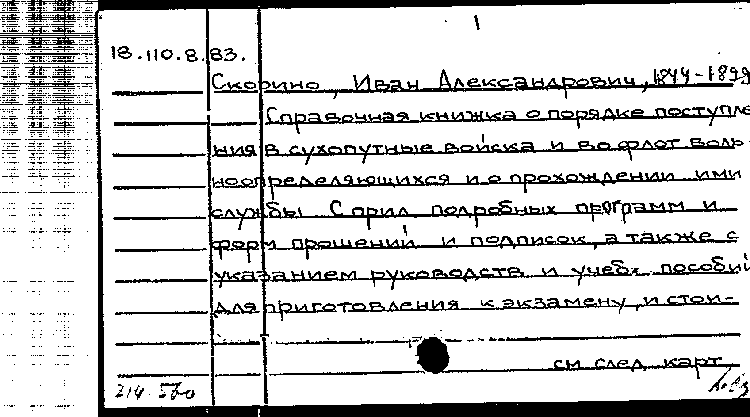 1
18.110.8.83.
Скорино, Иван Александрович, 1844-1899
Справочная книжка о порядке поступле
ния в сухопутные войска и во флот воль
ноопределяющихся и о прохождении ими
службы С прил подробных программ и
форм прошений и подписок, а также с
указанием руководств и учебн. пособий
для приготовления к экзамену, и стои-
см след. карт.
214.